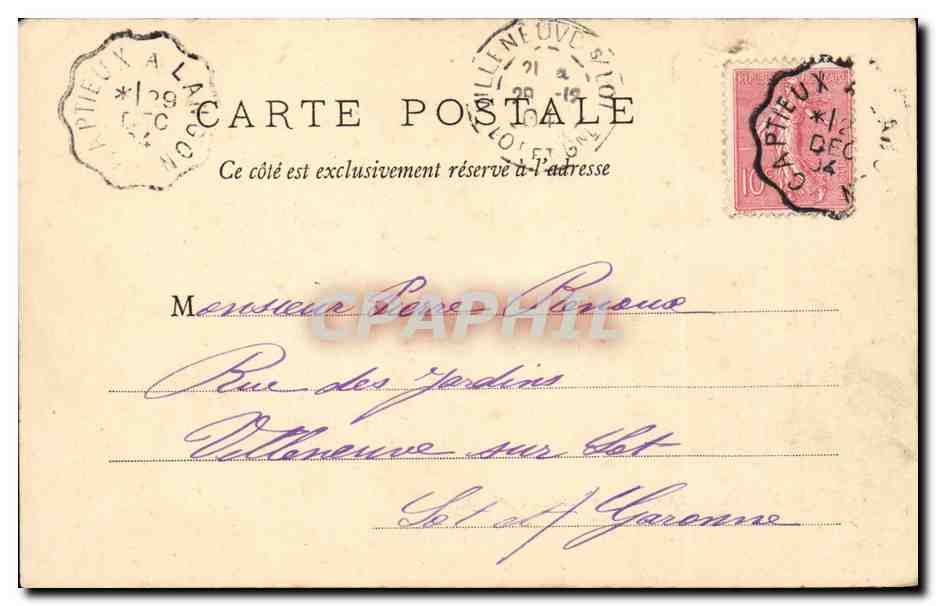 CAPTIEUX A LANGON
*/29
DEC
04
VILLENEUVE S/LOT
21
29 -12
04
LOT ET GNE
REPUBLIQUE FRANCAISE
10
CAPTIEUX A LANGON
*/2
DEC
04
CARTE POSTALE
Ce côté est exclusivement réservé à l'adresse
Monsieur Pierre Renoux
CPAPHIL
Rue des Jardins
Villeneuve sur Lot
Lot et Garonne